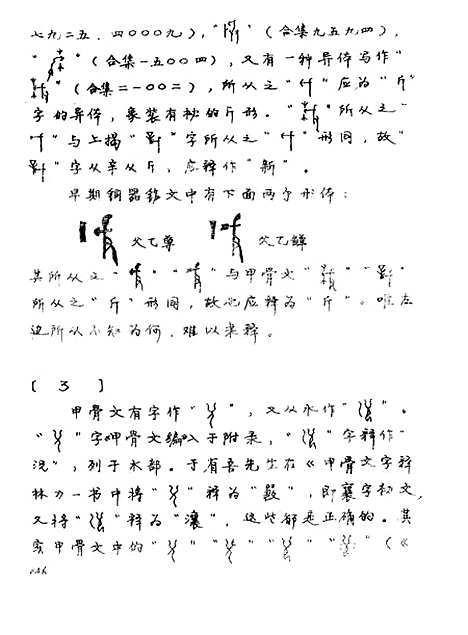 七九二五、四〇〇〇九),"" (合集九五九四),
"" (合集一五〇〇四),又有一种异体写作"
" (合集二一〇〇二),所从之"" 应为"斤"
字的异体,象装有柲的斤形。"" 所从之"
"与上揭""字所从之""形同,故"
"字从辛从斤,应释作"新"。
早期铜器铭文中有下面两个形体:
父乙尊 父乙觯
其所从之"" ""与甲骨文"" ""
所从之"斤"形同,故也应释为"斤"。唯左
边所从不知为何,难以索释。
[3]
甲骨文有字作"",又从水作""。
""字《甲骨文编》入于附录,""字释作"
",列于水部。于省吾先生在《甲骨文字释
林》一书中将""释为"",即襄字初文,
又将""释为"瀼",这些都是正确的。其
实甲骨文中的"" "" "" "" (《